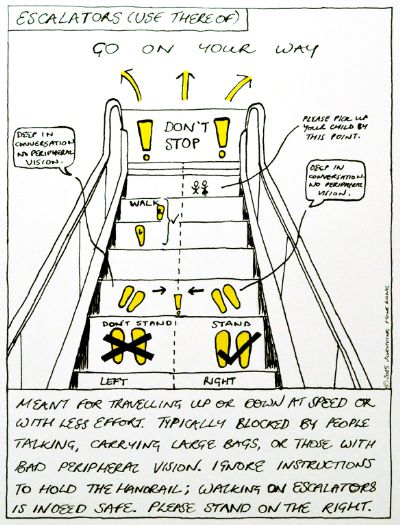 ESCALATORS (USE THEREOF)
GO ON YOUR WAY
DON'T
STOP
PLEASE PICK UP
YOUR CHILD BY
THIS POINT.
DEEP IN
CONVERSATION.
NO PERIPHERAL
VISION.
DEEP IN
CONVERSATION.
NO PERIPHERAL
VISION.
WALK
DON'T STAND
STAND
LEFT
RIGHT
MEANT FOR TRAVELLING UP OR DOWN AT SPEED OR
WITH LESS EFFORT. TYPICALLY BLOCKED BY PEOPLE
TALKING, CARRYING LARGE BAGS, OR THOSE WITH
BAD PERIPHERAL VISION. IGNORE INSTRUCTIONS
TO HOLD THE HANDRAIL; WALKING ON ESCALATORS
IS INDEED SAFE. PLEASE STAND ON THE RIGHT.